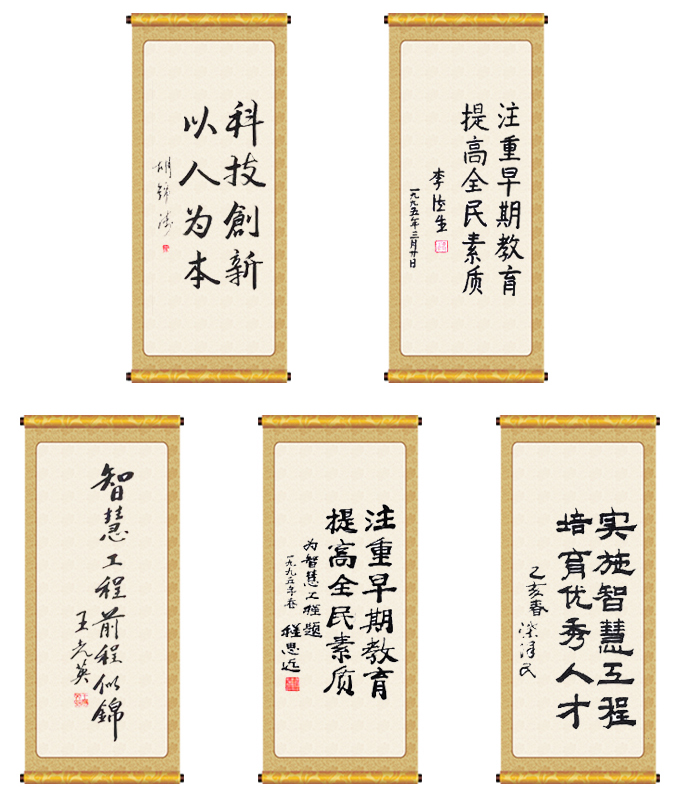 科技創新
以人为本
胡锦涛
注重早期教育
提高全民素质
李德生
一九九五年三月廿日
智慧工程前程似錦
王光英
注重早期教育
提高全民素质
为智慧工程题
一九九五年春
程思远
实施智慧工程
培育优秀人才
乙亥春 柴泽民